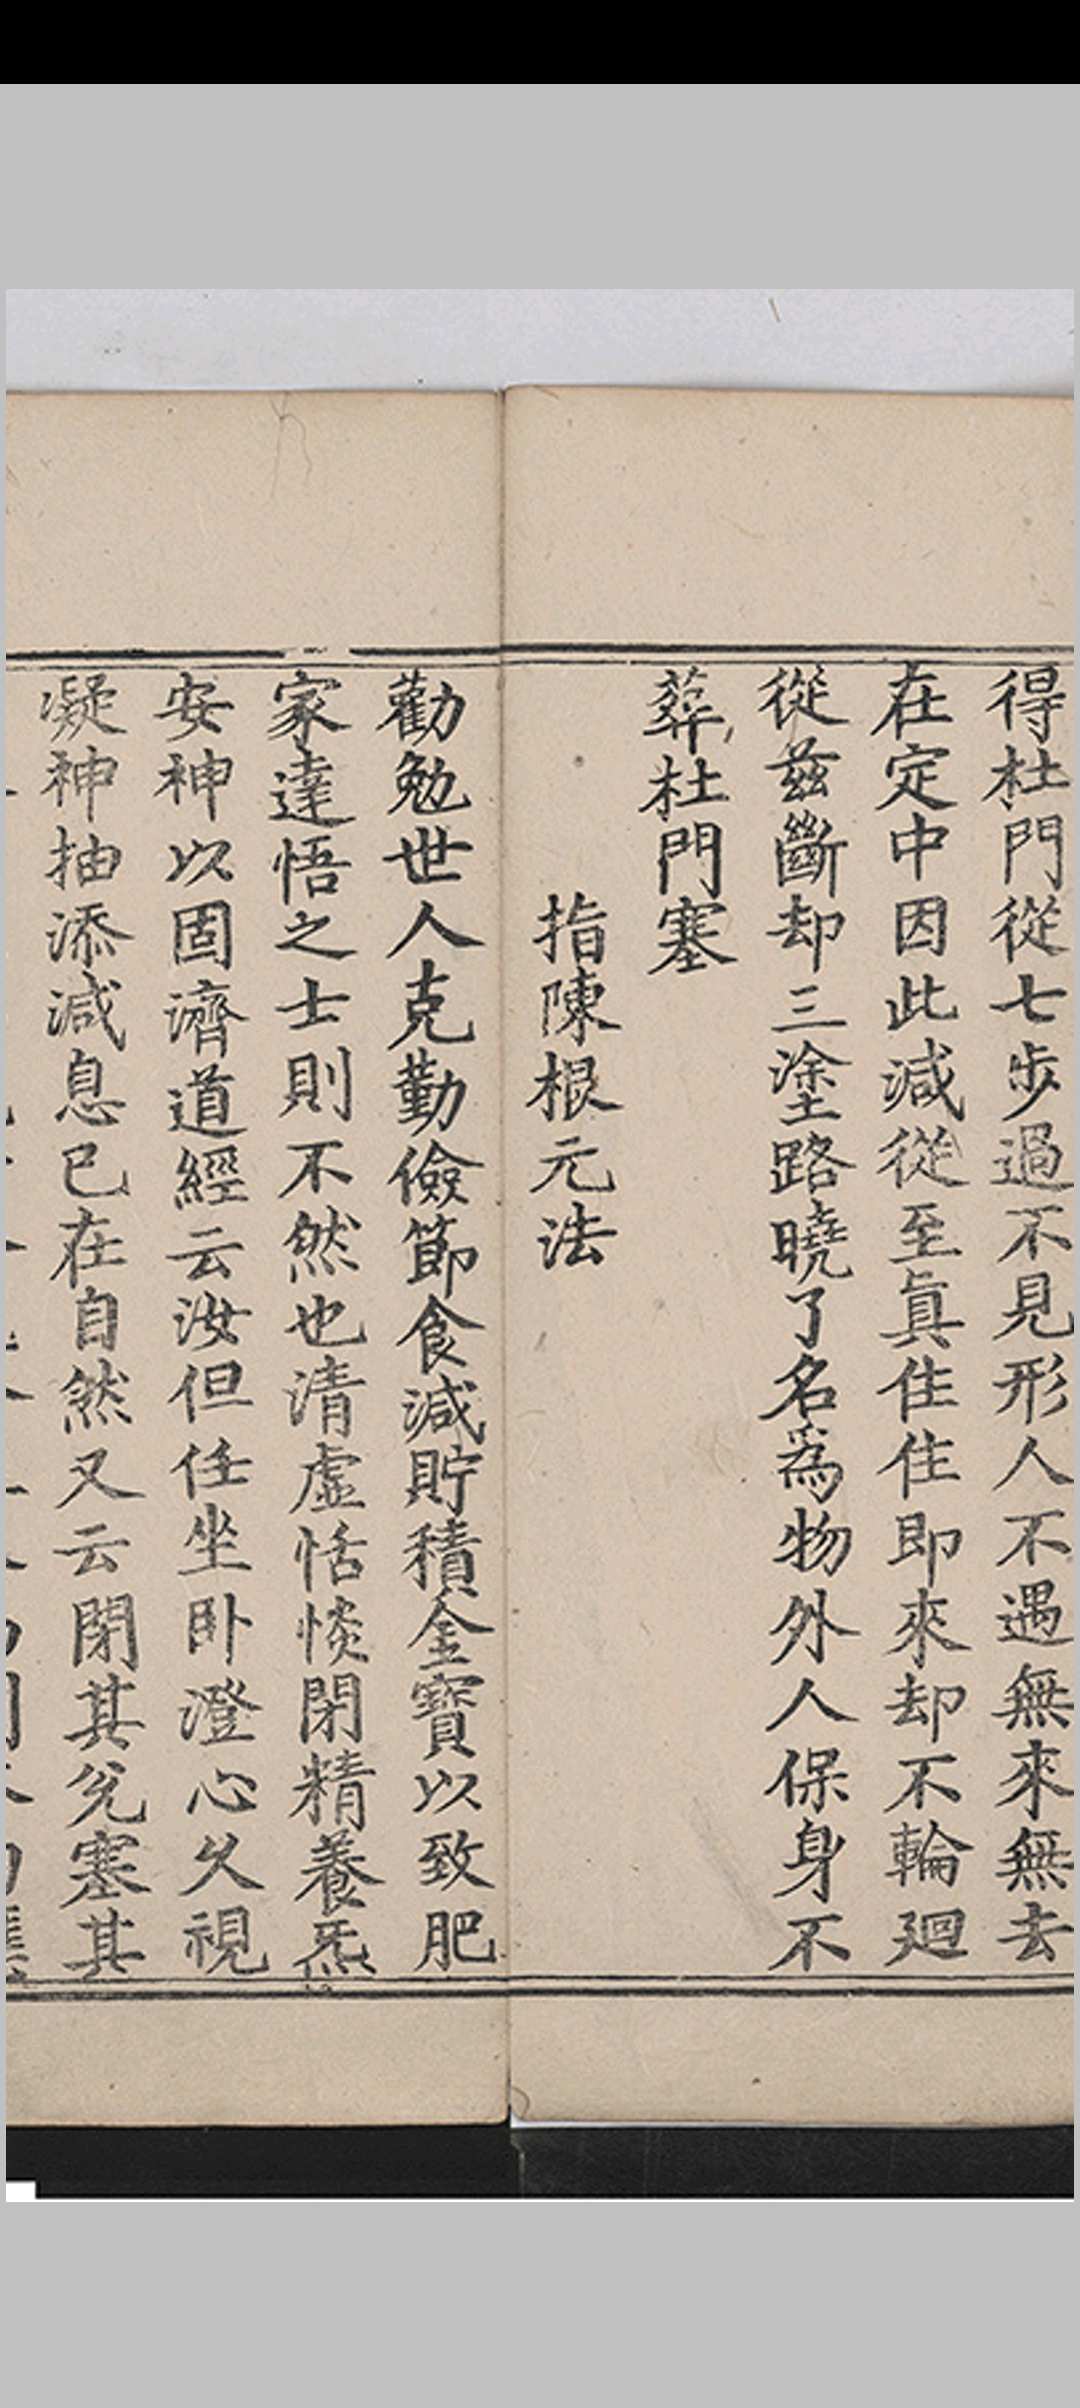 得杜門從七步過不見形人不遇無來無去
在定中因此減從至眞住住即來却不輪廻
從兹斷却三塗路曉了名爲物外人保身不
葬杜門塞
指陳根元法
勸勉世人克勤儉節食減貯積金寶以致肥
家達悟之士則不然也清虛恬惔閉精養炁
安神以固濟道經云汝但任坐卧澄心久視
凝神抽添減息已在自然又云閉其兊塞其